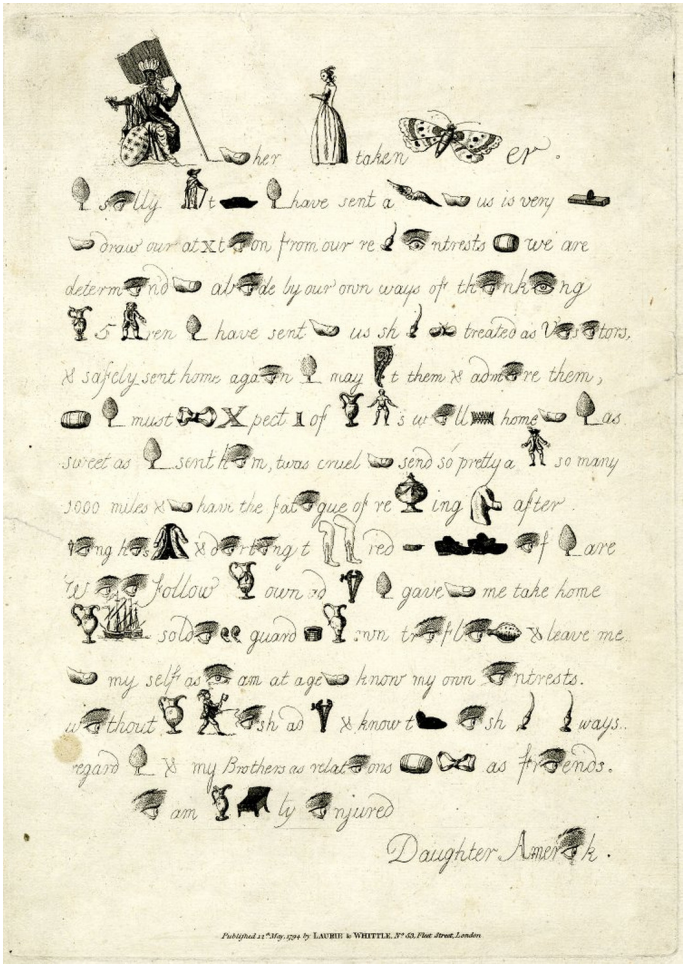 her taken er.
s lly. t have sent a us is very
draw our at x t on from our re ntrests we are
determ nd al de by our own ways of th nk ng
5 ren have sent us sh treated as V s tors,
& safely sent home aga n may t them & adm re them,
must X pect 1 of s w ll home as
sweet as sent h m, twas cruel send so pretty a so many
1000 miles & have the fat gue of re ing after.
ng h s & d rt ng t red f are
w follow own ad gave me take home
sold guard own tr fl & leave me
my self as am at age know my own ntrests.
w thout sh ad & know t sh ways..
regard & my Brothers as relat ons as fr ends.
am ly njured
Daughter Amer k.
Published 12th May, 1794 by LAURIE & WHITTLE, No 53, Fleet Street, London